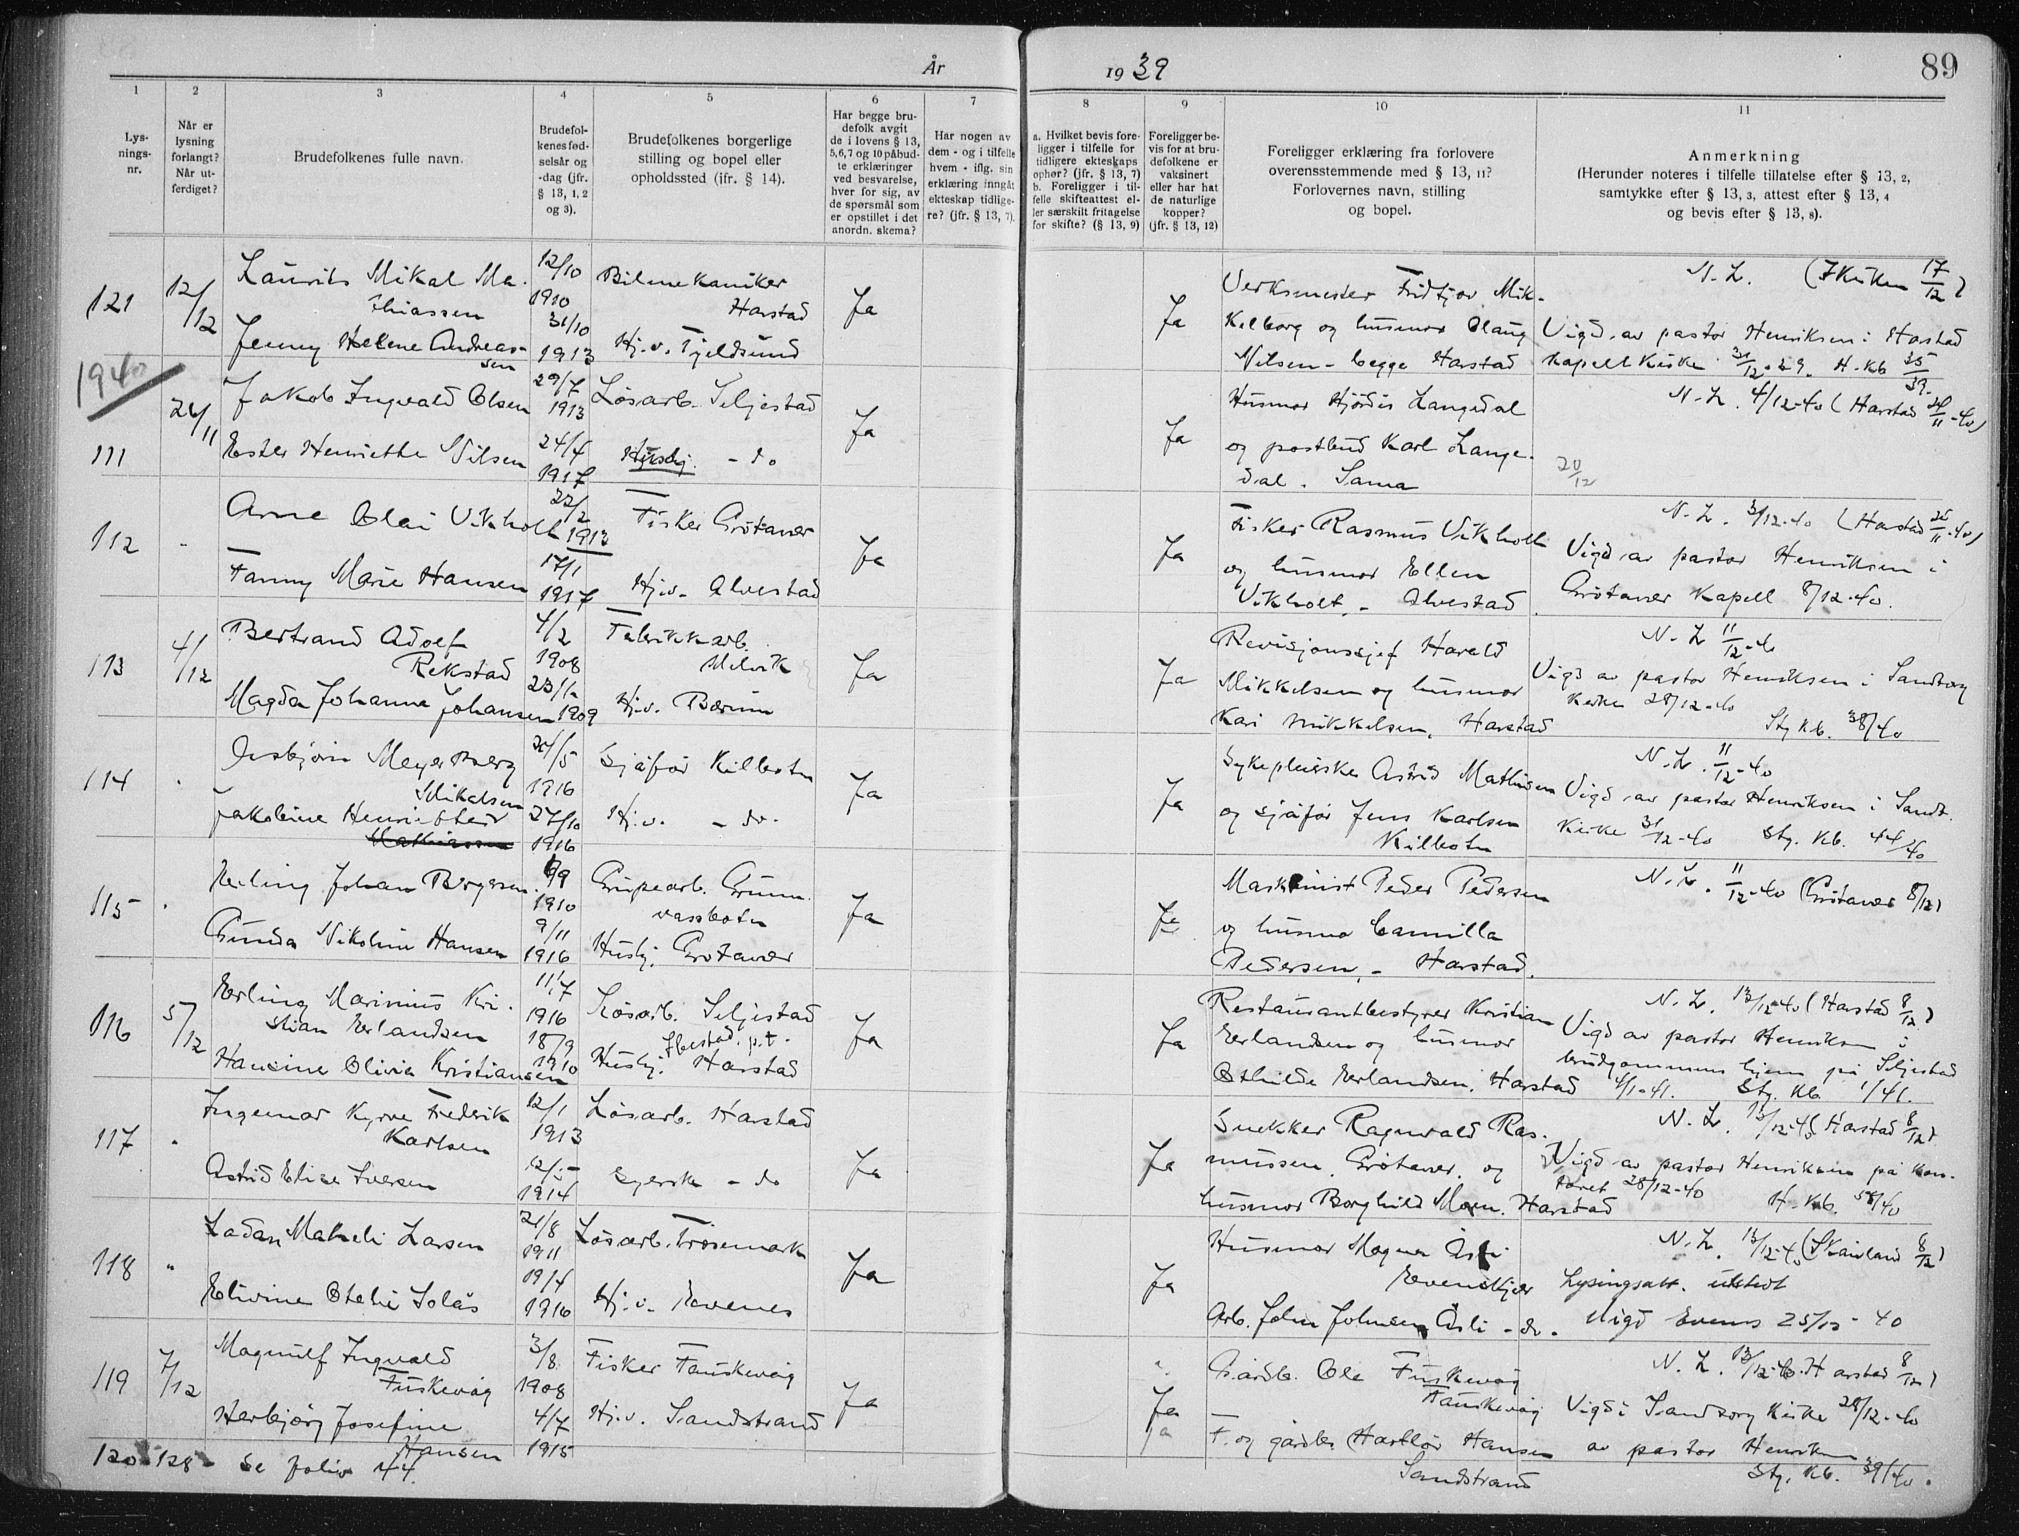 År 1939
89
1
2
3
4
5
6
7
8
9
10
11
Lys-
nings-
nr.
Når er
lysning
forlangt?
Når ut-
ferdiget?
Brudefolkenes fulle navn.
Brudefol-
kenes fød-
selsår og
-dag (jfr.
§ 13, 1, 2
og 3).
Brudefolkenes borgerlige
stilling og bopel eller
opholdssted (jfr. § 14).
Har begge bru-
defolk avgit
de i lovens § 13,
5,6,7 og 10 påbud-
te erklæringer
ved besvarelse,
hver for sig, av
de spørsmål som
er opstillet i det
anordn. skema?
Har nogen av
dem - og i tilfelle
hvem - iflg. sin
erklæring inngåt
ekteskap tidlige-
re? (jfr. § 13, 7).
a. Hvilket bevis fore-
ligger i tilfelle for
tidligere ekteskaps
ophør? (jfr. § 13, 7)
b. Foreligger i til-
felle skifteattest el-
ler særskilt fritagelse
for skifte? (§ 13, 9)
Foreligger be-
vis for at bru-
defolkene er
vaksinert
eller har hat
de naturlige
kopper?
(jfr. § 13, 12)
Foreligger erklæring fra forlovere
overensstemmende med § 13, 11?
Forlovernes navn, stilling
og bopel.
Anmerkning
(Herunder noteres i tilfelle tillatelse efter § 13, 2,
samtykke efter § 13, 3, attest efter § 13, 4
og bevis efter § 13, 8).
121
12/12
Laurits Mikal Ma-
thiassen
12/10
1910
Bilmekaniker
Harstad
Ja
Ja
Verksmester Fridtjov Mik-
kelborg og husmor Olaug
Nilsen - begge Harstad
N. L. 17/12)
Jenny Helene Andreas-
sen
31/10
1913
Hj.v. Tjeldsund
Vigd av pastor Henriksen i Harstad
kapell kirke 31/12-39. H. Kb 35/39
1940
111
26/11
Jakob Ingvald Olsen
29/7
1913
Løsarb. Seljestad
Ja
Ja
Husmor Hjørdis Langedal
og postbud Karl Lange-
dal. Sama
N. L. 4/12-40 (Harstad -40)
20/12
Ester Henriette Nilsen
24/4
1917
Husbg. - do
112
Arne Olai Vikholt
22/2
1913
Fisker Grøtavær
Ja
Ja
Fisker Rasmus Vikholt
og husmor Ellen
Vikholt, - Alvestad
N. L. 3/12-40 (Harstad -40)
Vigd av pastor Henriksen i
Grøtavær Kapell 8/12-40.
Fanny Marie Hansen
17/1
1917
Hj.v. Alvestad
113
4/12
Bertrand Adolf
Rekstad
4/2
1908
Fabrikkarb.
Ulvik
Ja
Ja
Revisjonssjef Harald
Mikkelsen og husmor
Kari Mikkelsen, Harstad
N. L 11/12-40
Vigd av pastor Henriksen i Sandtorg
kirke 28/12-40
St. Kb. 38/40
Magda Johanne Johansen
1909
Hj.v. Bærum
114
Asbjørn Meyer Berg
Mikalsen
1916
Sjåfør Kilbotn
Ja
Ja
Sykepleierske Astrid Mathisen
og sjåfør Jens Karlsen
Kilbotn
N. L. 11/12-40
Vigd av pastor Henriksen i Sandt.
kirke 31/12-40 St. Kb. 44/40
Jakobine
27/10
1916
Hj.v. - do.
115
Erling Johan Børgesen
1910
Grubearb. Grunn-
vassbotn
Ja
Ja
Maskinist Peder Pedersen
og husmo Camilla
Pedersen, - Harstad.
N. L. 11/12-40 (Grøtavær 8/12)
Gunda Nikoline Hansen
9/11
1916
Husbg. Grøtavær
116
5/12
Erling Marinius Kri-
stian Erlandsen
11/7
1916
Løsarb. Seljestad
Ibestad, p.t.
Ja
Ja
Restaurantbestyrer Kristian
Erlandsen og husmor
Othilde Erlandsen, Harstad
N. L. 13/12-40 (Harstad 8/12)
Vigd av pastor Henriksen i
brudgommens hjem på Seljestad
4/1-41. St. Kb 1/41.
Hansine Olivia Kristiansen
18/9
1910
Husbg. Harstad
117
Ingemar Kyrre Fredrik
Karlsen
12/1
1913
Løsarb. Harstad
Ja
Ja
Snekker Ragnvald Ras-
mussen, Grøtavær, og
husmor Borghild Moen, Harstad
N. L. 13/12-40 (Harstad 8/12)
Vigd av pastor Henriksen på kon-
toret 28/12-40
H. Kb. 58/40
Astrid Elise Iversen
1914
Syersk - do
118
Larsen
21/8
1911
Løsarb. Trøsemark
Ja
Ja
Husmor Magna Åsli
Evenskjer
Arb. John Johnsen Åsli - do.
N. L. 13/12-40 (Skånland 8/12)
Lysingsatt. utstedt
Vigd Evenes 25/12-40
Elivine Otelie Solås
19/4
1916
Hj.v. Evenes
119
7/12
Magnulf Ingvald
Fuskevåg
3/8
1908
Fisker Fauskevåg
Ja
Ja
Gårdb. Ole Fuskevåg
Fauskevåg
F. og gårdbr. Hartløv Hansen
Sandstrand
N. L. 13/12-40. Harstad 8/12)
Vigd i Sandtorg kirke 28/12-40
av pastor Henriksen
St. Kb. 39/40.
Herbjørg Josefine
Hansen
4/7
1915
Hj.v. Sandstrand
120-128 - Se folio 44.